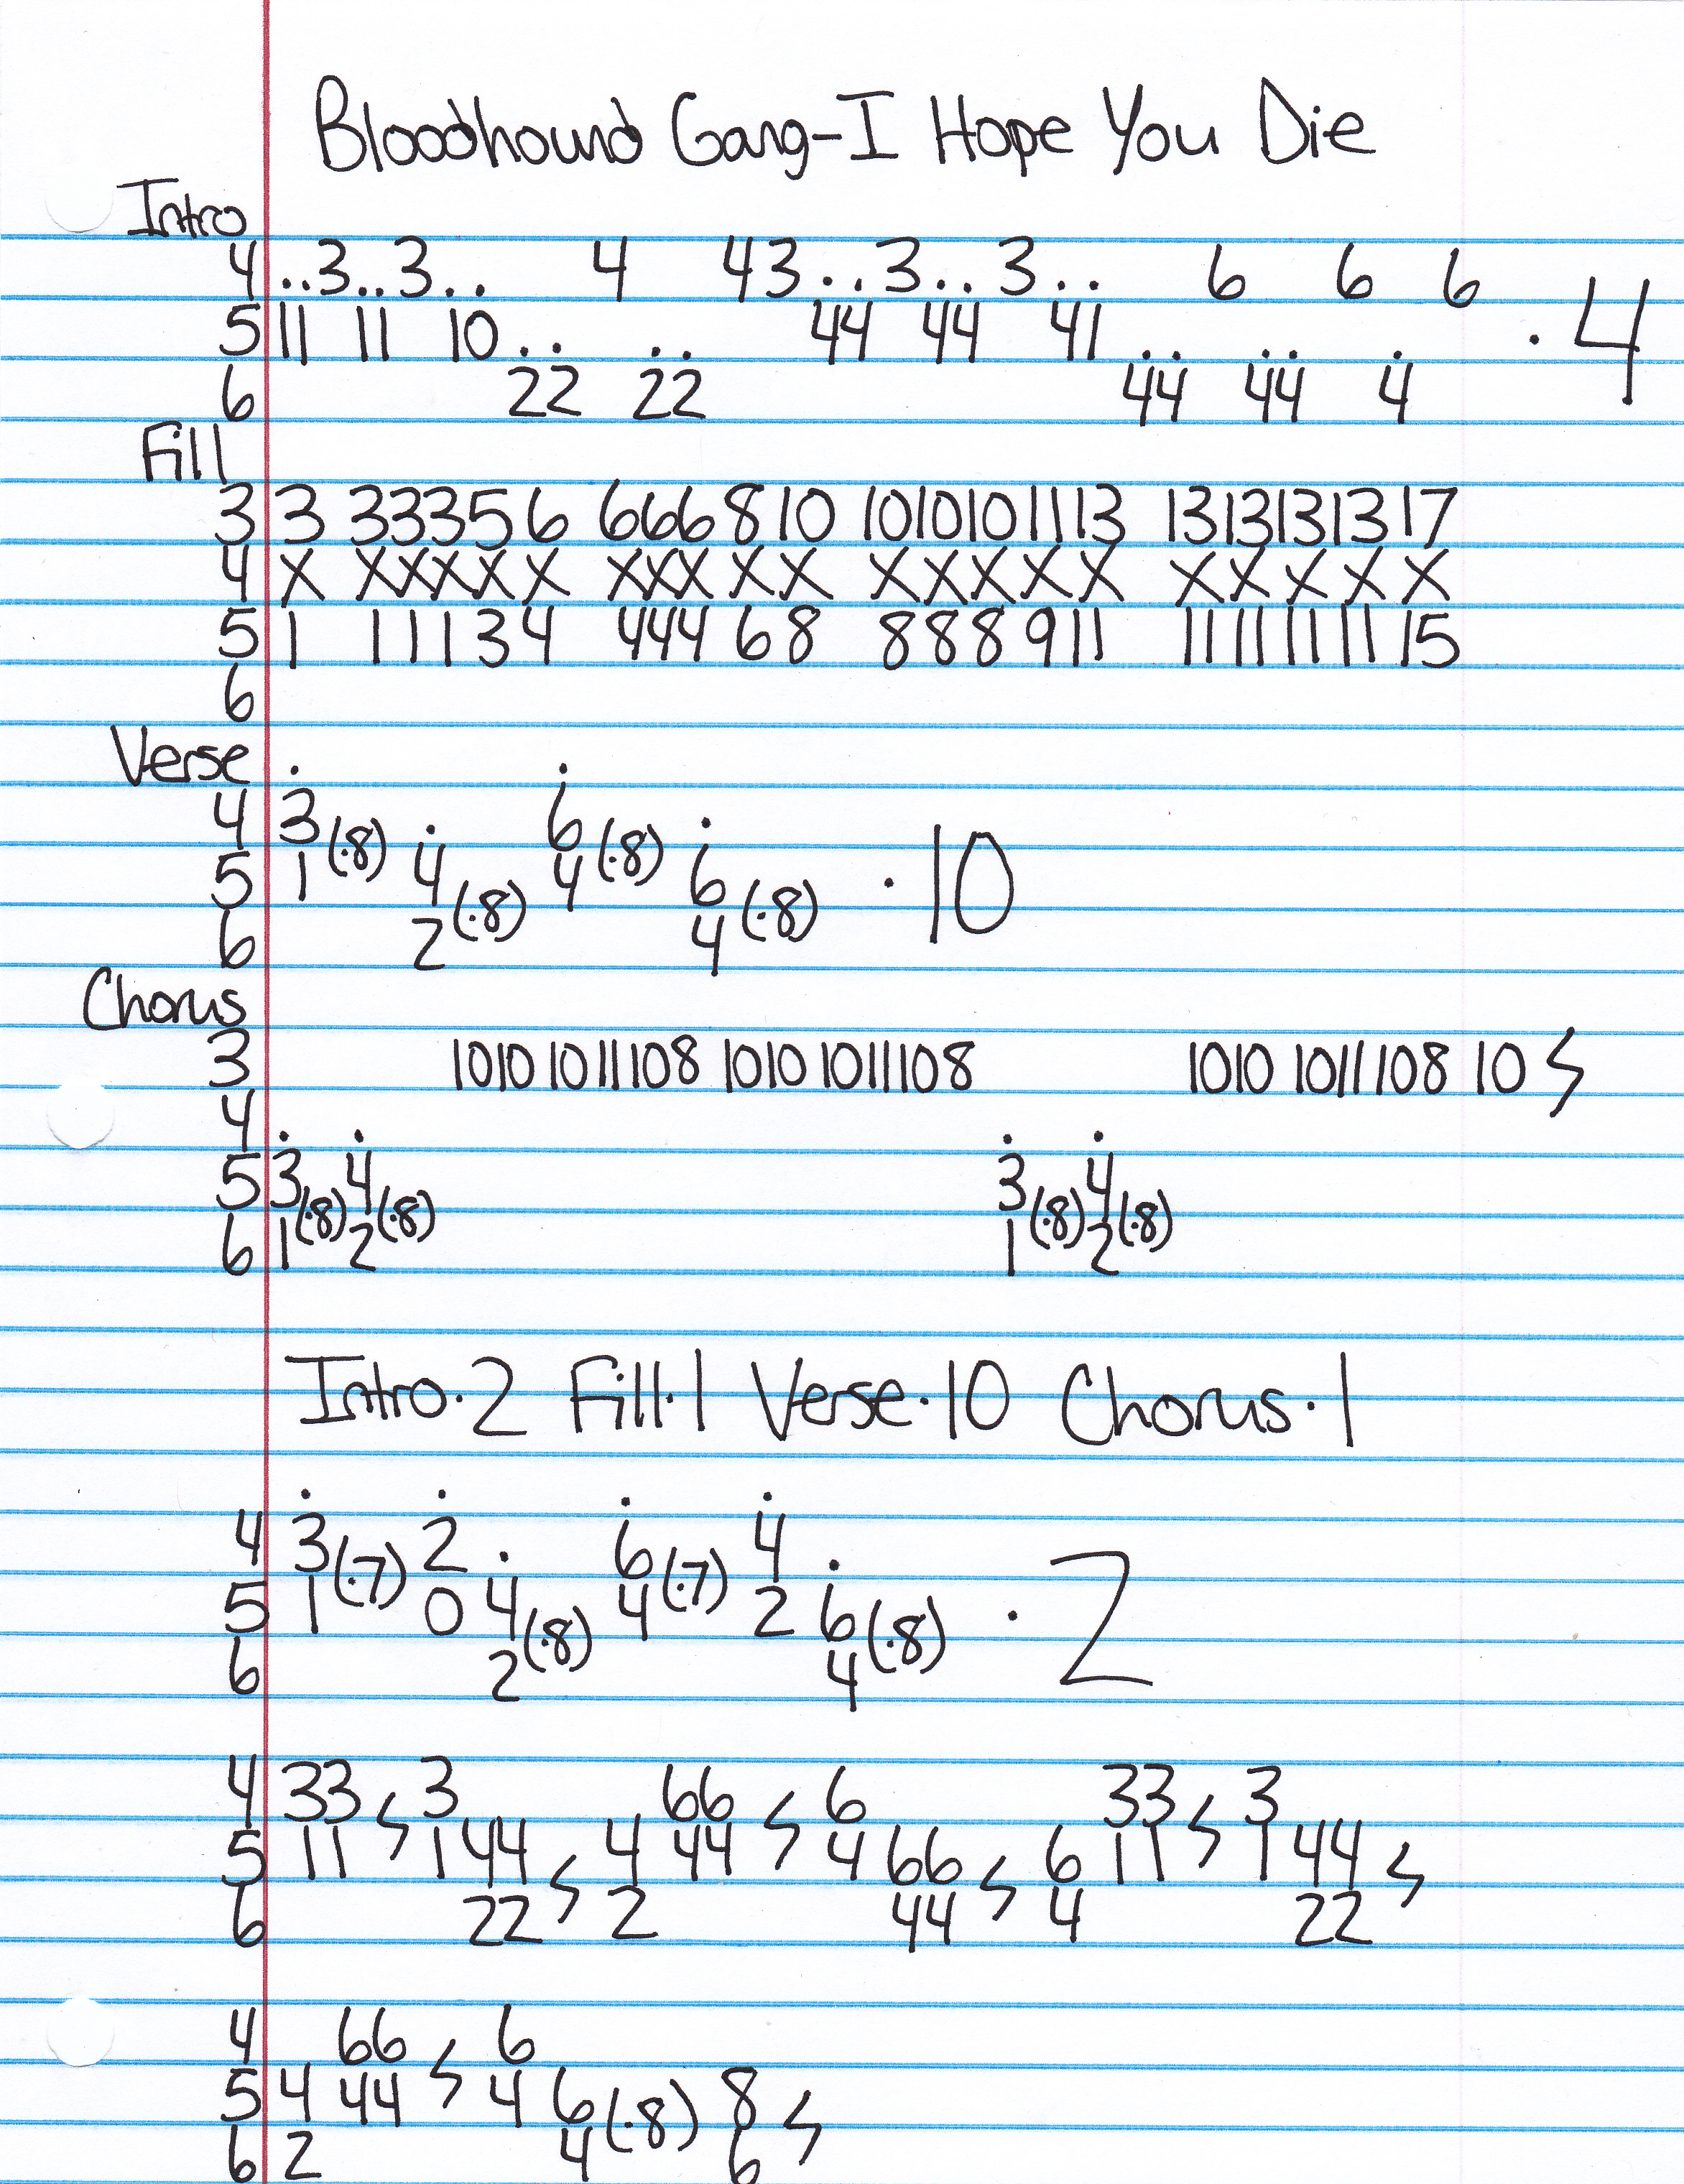 Bloodhound Gang-I Hope You Die
Intro
4 ..3..3.. 4 43..3..3.. 6 6 6
5 11 11 10.. .. 44 44 41.. .. . · 4
6 22 22 44 44 4
Fill
3 3 33356 666810 1010101113 1313131317
4 X XXXXX XXXXX XXXXX XXXXX
5 1 11134 44468 888911 1111111115
6
Verse . .
4 3 (·8) . 6 (·8) .
5 1 4 (·8) 4 6 (·8) · 10
6 2 4
Chorus
3 1010 1011108 1010 1011108 1010 1011108 10
4 . . . .
5 3 (·8) 4 (·8) 3 (·8) 4 (·8)
6 1 2 1 2
Intro·2 Fill·1 Verse·10 Chorus·1
. . . .
4 3 (·7) 2 . 6 (·7) 4 .
5 1 0 4 (·8) 4 2 6 (·8) · 2
6 2 4
4 33 3 66 6 33 3
5 11 1 44 4 44 4 66 6 11 1 44
6 22 2 44 4 22
4 66 6
5 4 44 4 6 (·8) 8
6 2 4 6